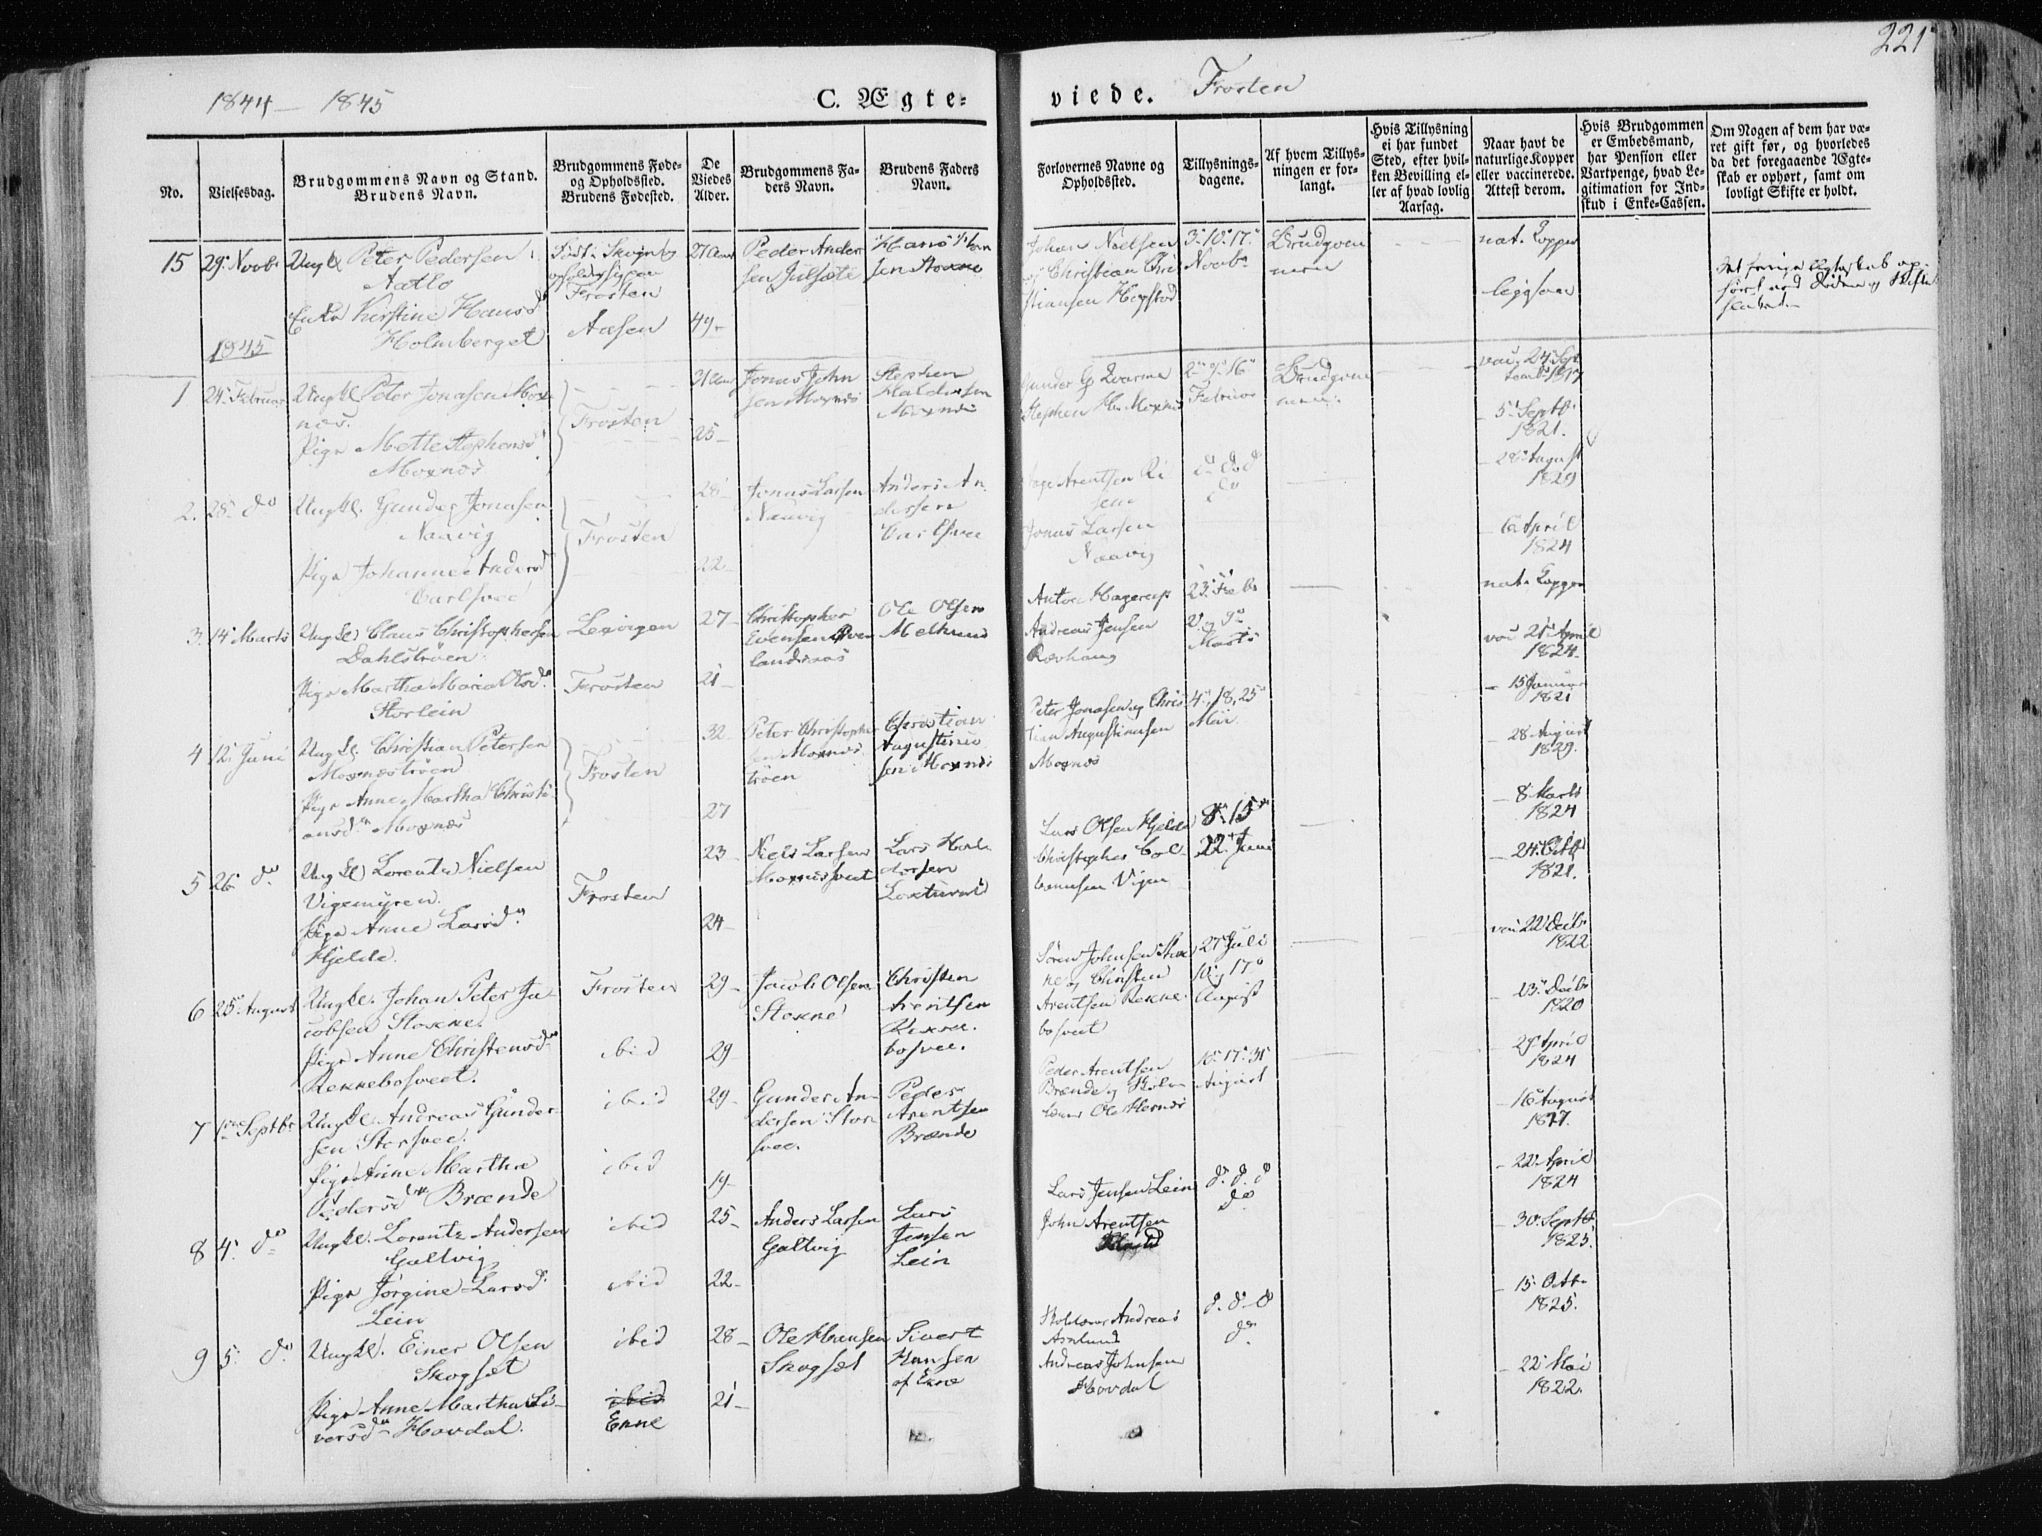 221
1844 - 1845
C. Ægte-
viede. Frosten
No.
Vielsesdag.
Brudgommens Navn og Stand.
Brudens Navn.
Brudgommens Føde-
og Opholdssted.
Brudens Fødested.
De
Viedes
Alder.
Brudgommens Fa-
ders Navn.
Brudens Faders
Navn.
Forlovernes Navne og
Opholdssted.
Tillysnings-
dagene.
Af hvem Tillys-
ningen er for-
langt.
Hvis Tillysning
ei har fundet
Sted, efter hvil-
ken Bevilling el-
ler af hvad lovlig
Aarsag.
Naar havt de
naturlige Kopper
eller vaccinerede.
Attest derom.
Hvis Brudgommen
er Embedsmand,
har Pension eller
Vartpenge, hvad Le-
gitimation for Ind-
skud i Enke-Cassen.
Om Nogen af dem har væ-
ret gift før, og hvorledes
da det foregaaende Ægte-
skab er ophørt, samt om
lovligt Skifte er holdt.
15 29 Novbr Ungk Peter Pedersen
Aatlo
Enke Kirstine Hansd
Holmberget
Frosten
Aasen
21 Aar
49
Peder Ander
sen Julsete
Hans Han
sen
Johan Nielsen
og Christian Chri
stiansen Hogstad
3. 10. 17.
Novbr
Brudgom
men
nat. Kopper
ligesaa
1845
1 24 Februar Ungk Peter Jonasen Mox
nes.
Pige Mette Stephensd
Moxnes
Frosten
21 Aar
25
Jonas John
sen Moxnes
Stephen
Haldorsen
Moxnes
Gunder G Kvarme
Stephen H Moxnes
2. 9. 16
Februar
Brudgom
men
vac. 24 Sep
temb 1817
5 Septb
1821.
2. 25 do Ungk. Gunder Jonasen
Naavig
Pige Johanne Andersd
Carlsvee
Frosten
28
22
Jonas Larsen
Naavig
Anders An
dersen
Carlsvee
Arentsen
Jonas Larsen
Naavig
28 August
1820
6 April
1824
3. 14 Marts Ungk Claus Christophersen
Dahlstrøen
Pige Martha Maria Olsd
Storlein
Lexvigen
Frosten
27
21
Christopher
Evensen
Ole Olsen
Melhuus
Anton Hagerup
Andreas Jensen
Revhaug
23 Feb
2 og 9
Marts
nat. Kopper
vac 21 April
1824
4 12 Juni Ungk Christian Petersen
Moxnestrøen
Pige Anne Martha Christi
ansd Moxnes
Frosten
32
27
Peter Christopher
sen Moxnes
trøen
Christian
Augustinus
sen Moxnes
Peter Jonasen og Chris
tian Augustinusen
Moxnes
4, 18, 25
Mai
15 Januar
1821
28 August
1829.
5 26 do Ungk Lorents Nielsen
Vigemyren.
Pige Anne Larsd
Hjelde.
Frosten
23
24
Niels Larsen
Moxnesveet
Lars Hal
dorsen
Lars Olsen Hjelde
Christopher Col
bensen Vigen
8. 15
22 Juni
8 Marts
1824
24 Octb
1821.
6 25 August Ungk. Johan Peter Ja-
cobsen Stokke.
Pige Anne Christensd
Rekkebosveet.
Frosten
ibid
29
29
Jacob Olsen
Stokke
Christen
Arentsen
Rekke-
bosvee.
Søren Johnsen Stok
ke og Christen
Arentsen Rekke-
bosveet
27 Juli
10 og 17
August
vac 22 Decbr
1822
13 Decbr
1820
7 1 Septbr Ungk. Andreas Gunder-
sen Storsvee.
Pige Anne Martha
Pedersd Brænde
ibid
ibid
29
19
Gunder An-
dersen Stor-
svee.
Peder
Arentsen
Brænde
Peder Arentsen
Brænde og Skole
lærer Ole Hernes
10. 17. 31
August
29 April
1824
16 August
1827.
8 4 do Ungk. Lorents Andersen
Galtvig
Pige Jørgine Larsd
Lein
ibid
ibid
25
22
Anders Larsen
Galtvig
Lars
Jensen
Lein
Lars Jensen Lein
John Arentsen
do. do. do
do
22 April
1824
30 Septb
1825.
9 5. do. Ungk. Einer Olsen
Skogset
Pige Anne Martha Si-
versd Hovdal.
ibid
ibid
Ekne
28
21
Ole Hansen
Skogset
Sivert
Hansen
af Ekne
Skolelærer Andreas
Aalund
Andreas Johnsen
Hovdal
do. do. do
do.
15 Octb
1825.
22 Mai
1822.